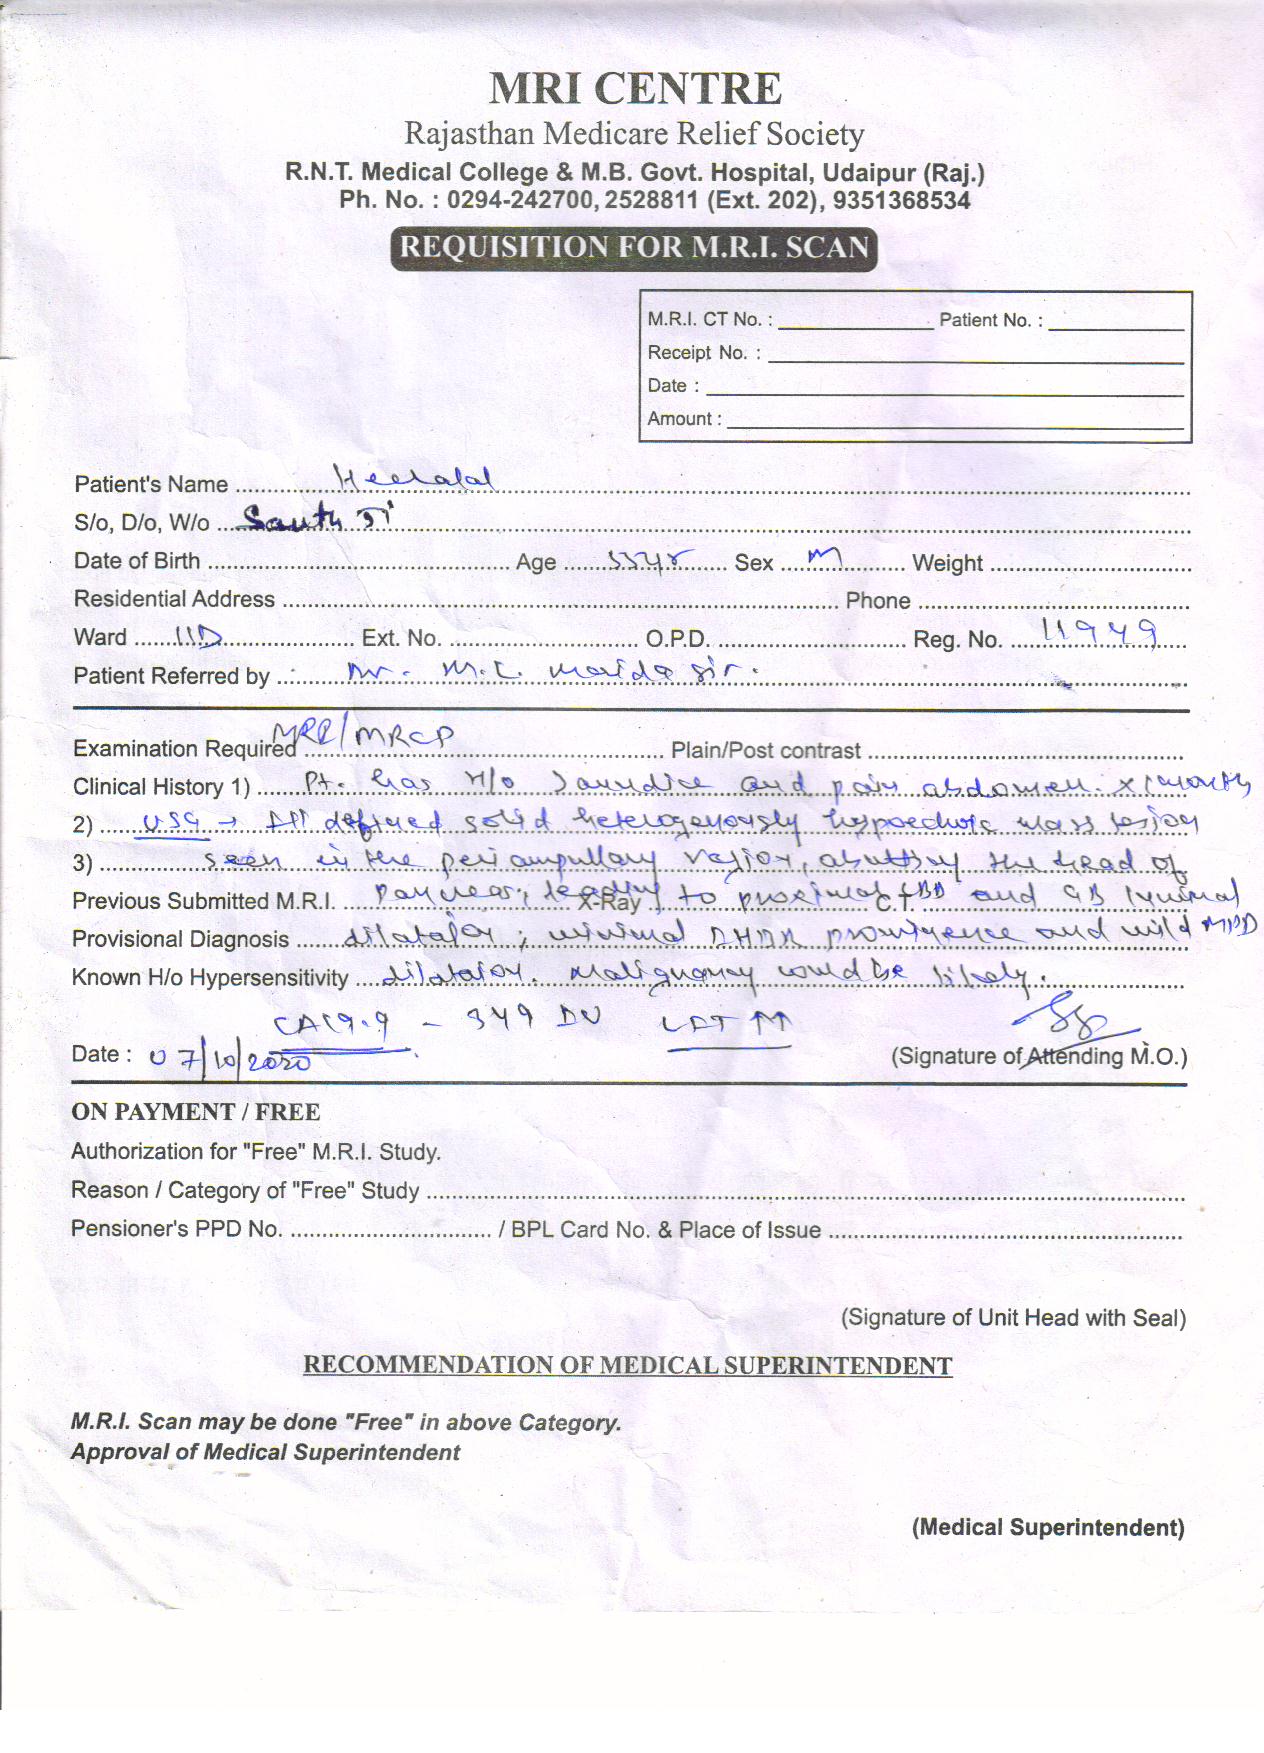 MRI CENTRE
Rajasthan Medicare Relief Society
R.N.T. Medical College & M.B. Govt. Hospital, Udaipur (Raj.)
Ph. No. : 0294-242700, 2528811 (Ext. 202), 9351368534
REQUISITION FOR M.R.I. SCAN
M.R.I. CT No. : Patient No. :
Receipt No. :
Date :
Amount :
Patient's Name Heeralal
S/o, D/o, W/o
Date of Birth Age 55yr Sex M Weight
Residential Address Phone
Ward 11D Ext. No. O.P.D. Reg. No. 11949
Patient Referred by Dr. M.L. sir.
Examination Required /MRCP Plain/Post contrast
Clinical History 1) Pt. has H/o Jaundice and pain abdomen x 1 month
2) USG → defined solid heterogenously hypoechoic mass lesion
3) seen in the periampullary region, abutting the head of
Previous Submitted M.R.I. X-Ray C.T.
pancreas, leading to proximal CBD and GB luminal
Provisional Diagnosis dilatation; minimal prominence and mild MPD
Known H/o Hypersensitivity dilatation. Malignancy could be likely.
CA19.9 - 349 LFT ↑↑
Date : 07/10/2020 (Signature of Attending M.O.)
ON PAYMENT / FREE
Authorization for "Free" M.R.I. Study.
Reason / Category of "Free" Study
Pensioner's PPD No. / BPL Card No. & Place of Issue
(Signature of Unit Head with Seal)
RECOMMENDATION OF MEDICAL SUPERINTENDENT
M.R.I. Scan may be done "Free" in above Category.
Approval of Medical Superintendent
(Medical Superintendent)